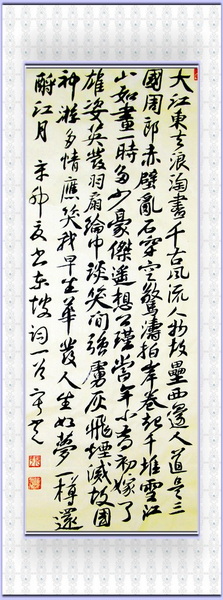 大江東去浪淘盡千古風流人物故壘西邊人道是三
國周郎赤壁亂石穿空驚濤拍岸卷起千堆雪江
山如畫一時多少豪傑遙想公瑾當年小喬初嫁了
雄姿英發羽扇綸巾談笑間強虜灰飛煙滅故國
神游多情應笑我早生華發人生如夢一樽還
酹江月 辛卯夏書東坡詞一首